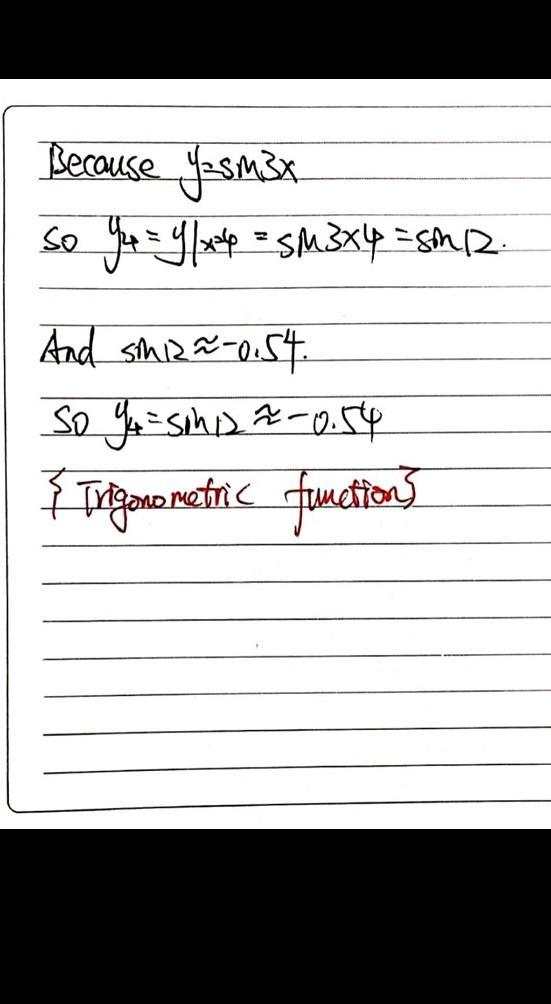 Because y=sin3x
So y₄=y|ₓ₌₄ = sin3×4=sin12.
And sin12≈-0.54.
So y₄=sin12≈-0.54
{Trigonometric function}